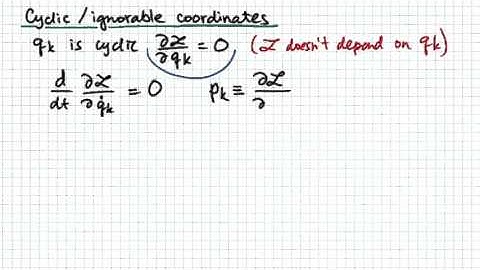 Cyclic / ignorable coordinates
qk is cyclic ∂ℒ/∂qk = 0 (ℒ doesn't depend on qk)
d/dt ∂ℒ/∂q̇k = 0 pk ≡ ∂ℒ/∂